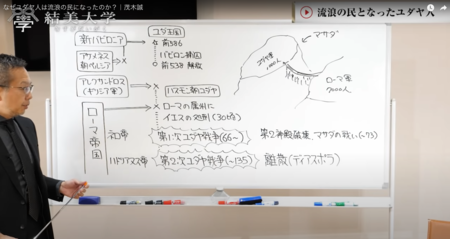 なぜユダヤ人は流浪の民になったのか？｜茂木誠
結美大学
▶流浪の民となったユダヤ人
新バビロニア
ユダ王国
前586
バビロン捕囚
前538 解放
アケメネス
朝ペルシア
アレクサンドロス
(ギリシア軍)
ハスモン朝ユダヤ
ローマの属州に
イエスの処刑 (30頃)
ローマ帝国
ネロ帝
第1次ユダヤ戦争(66~)
第2神殿破壊、マサダの戦い(~73)
ハドリアヌス帝
第2次ユダヤ戦争(~135)
離散(ディアスポラ)
マサダ
ローマ軍